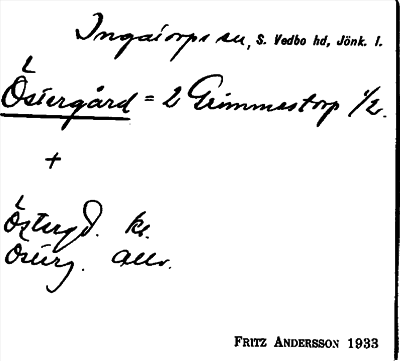 Ingatorps sn, S. Vedbo hd, Jönk. l.
Östergård = 2 Grimmestorp 1/2.
+
Östergd. kr.
Österg. allv.
FRITZ ANDERSSON 1933